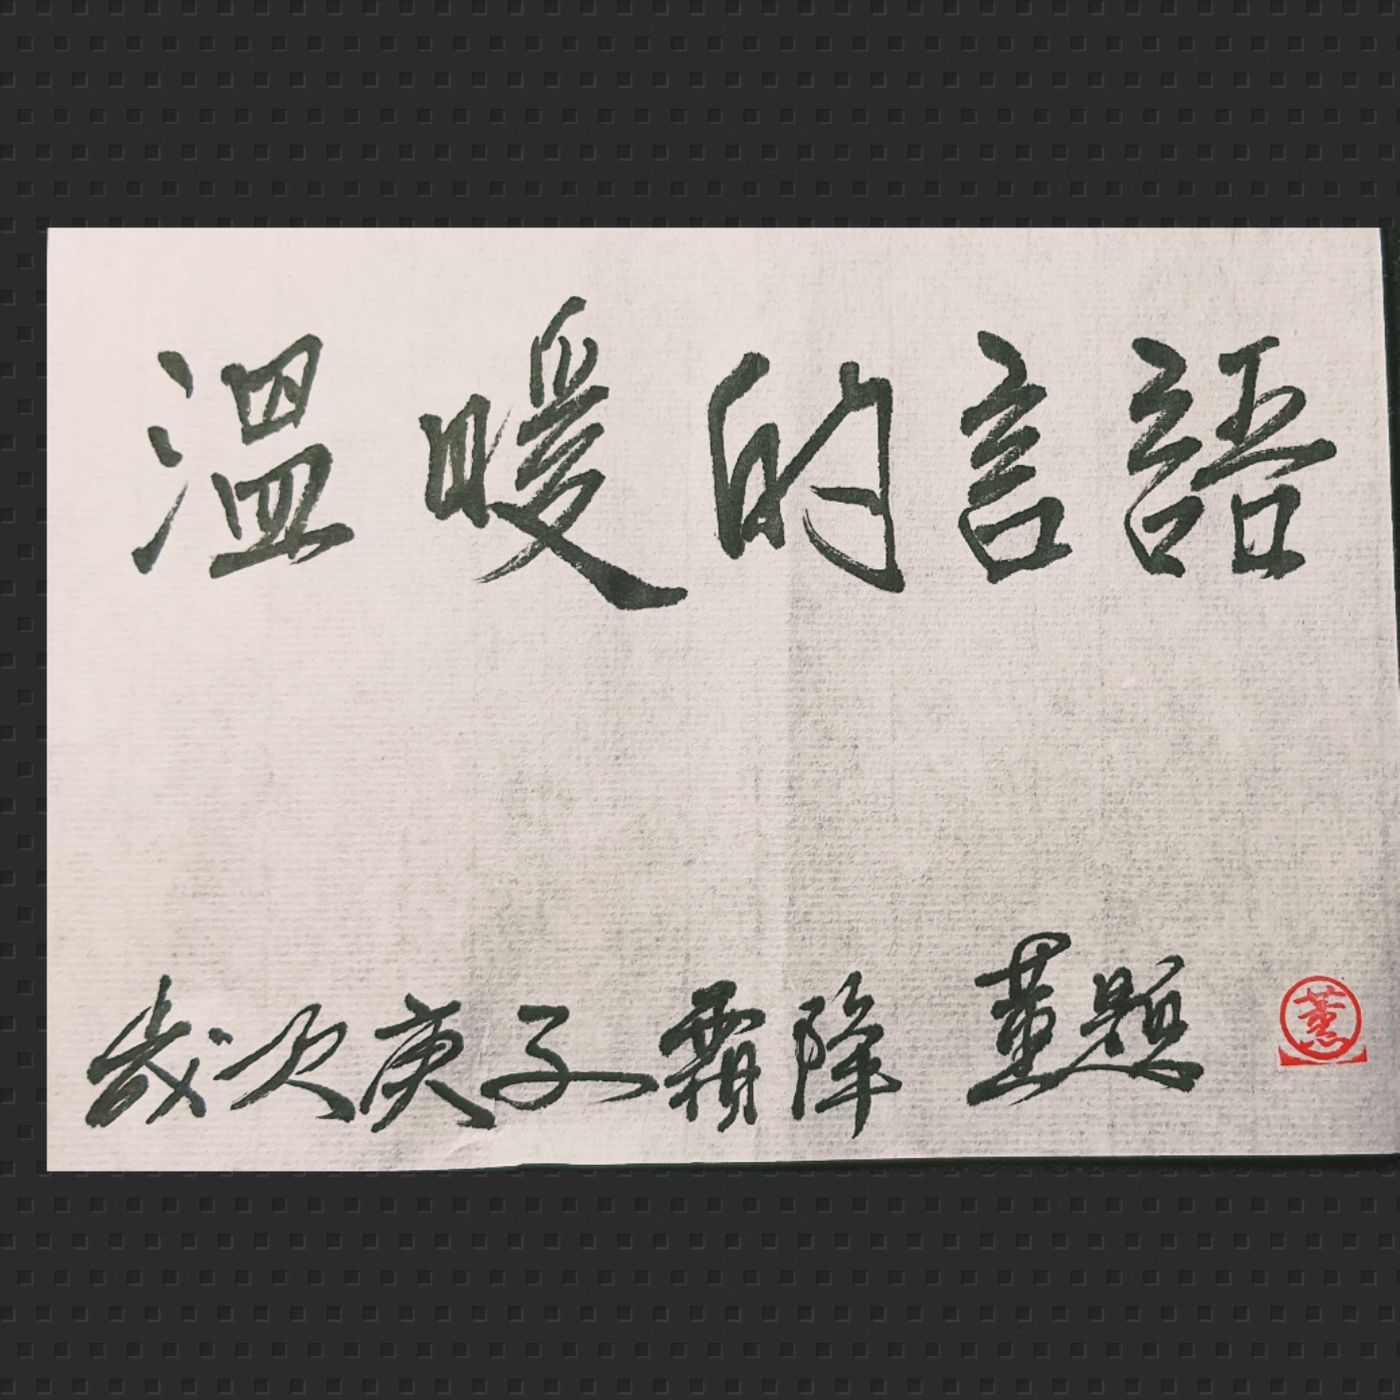 溫暖的言語
歲次庚子霜降 薰題
薰